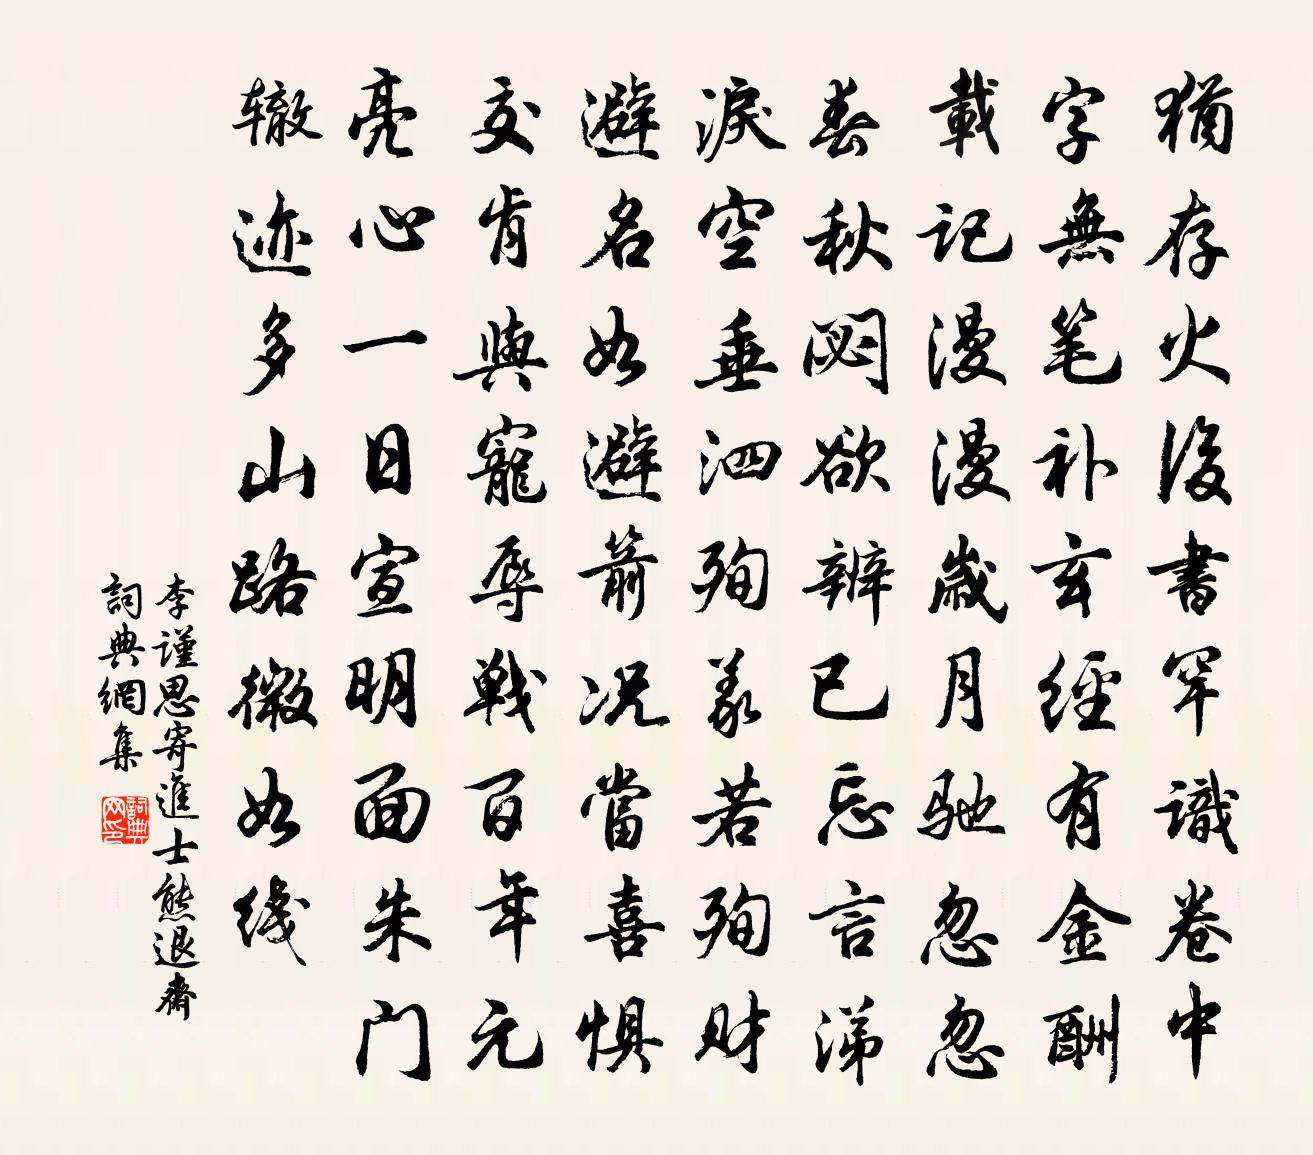 猶存火後書罕識卷中
字無笔补玄經有金酬
載記漫漫歲月驰忽忽
春秋閟欲辨已忘言涕
淚空垂泗殉義若殉财
避名如避箭况當喜惧
交肯與寵辱戰百年元
亮心一日宣明面朱门
辙迹多山路微如线
李謹思寄進士熊退齋
詞典網集
詞典网印